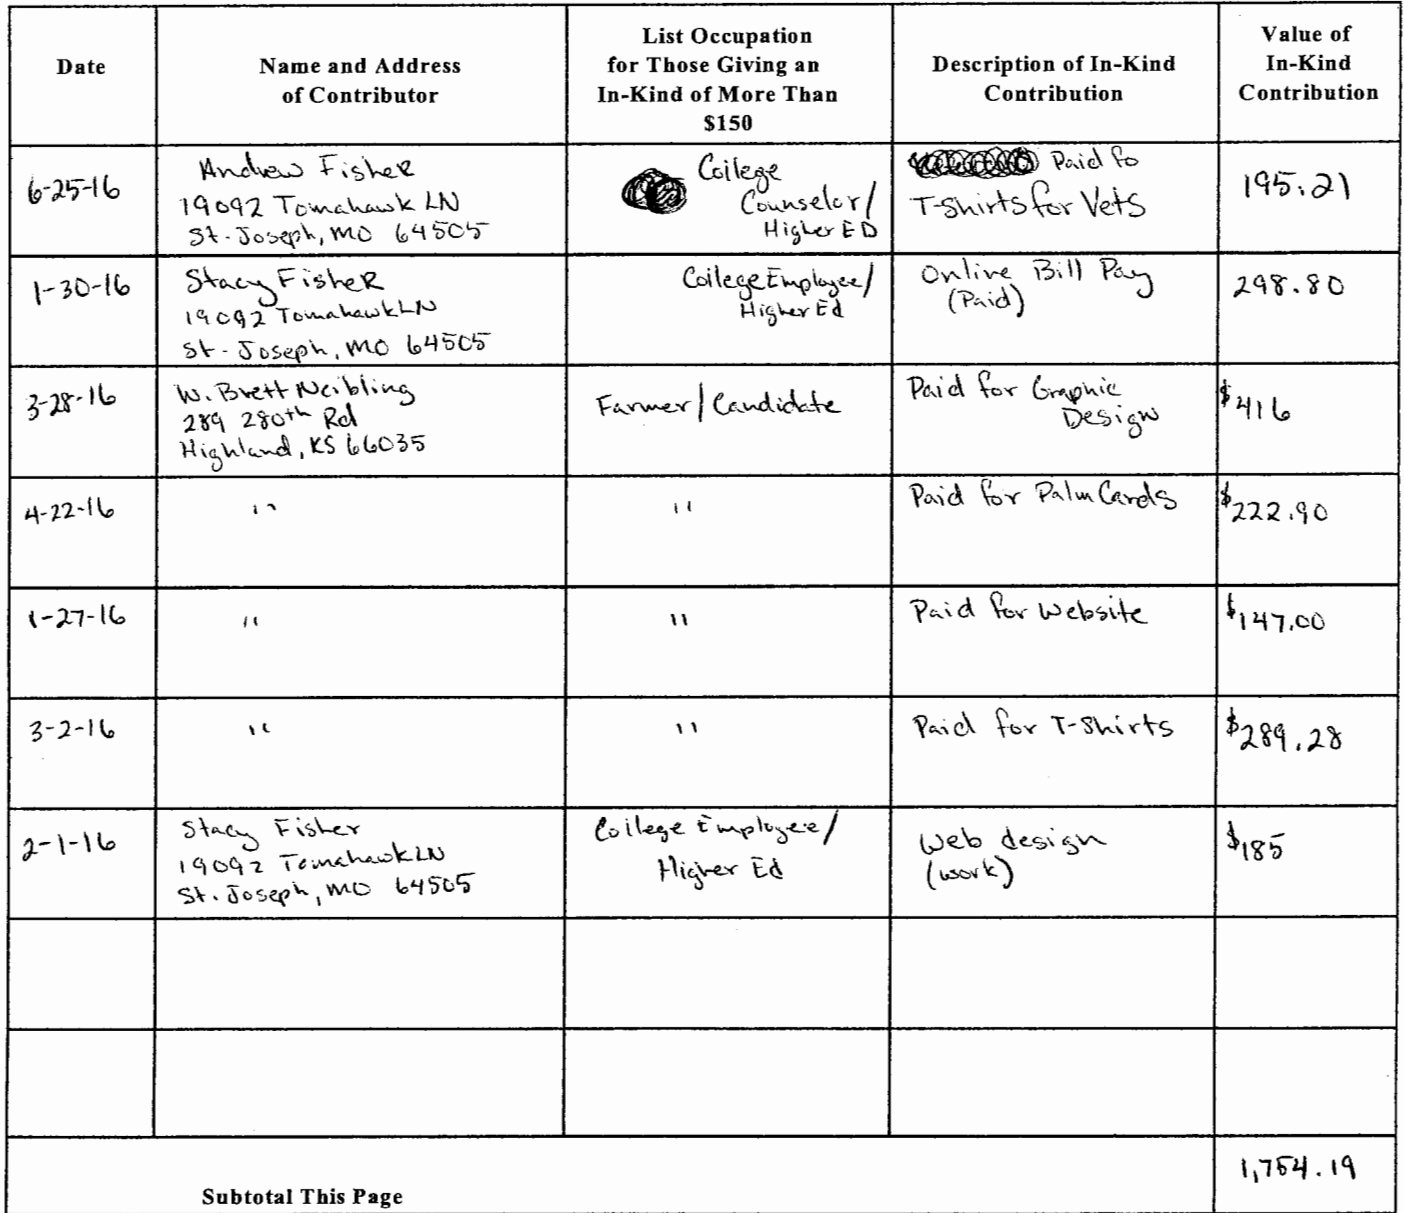 Date
Name and Address
of Contributor
List Occupation
for Those Giving an
In-Kind of More Than
$150
Description of In-Kind
Contribution
Value of
In-Kind
Contribution
6-25-16
Andrew Fisher
19092 Tomahawk LN
St. Joseph, MO 64505
College
Counselor/
Higher ED
Paid fo
T-Shirts for Vets
195.21
1-30-16
Stacy Fisher
19092 Tomahawk LN
St. Joseph, MO 64505
College Employee/
Higher Ed
Online Bill Pay
(Paid)
298.80
3-28-16
W. Brett Neibling
289 280th Rd
Highland, KS 66035
Farmer/Candidate
Paid for Graphic
Design
$416
4-22-16
"
"
Paid for Palm Cards
$222.90
1-27-16
"
"
Paid for Website
$147.00
3-2-16
"
"
Paid for T-Shirts
$289.28
2-1-16
Stacy Fisher
19092 Tomahawk LN
St. Joseph, MO 64505
College Employee/
Higher Ed
Web design
(work)
$185
Subtotal This Page
1,754.19